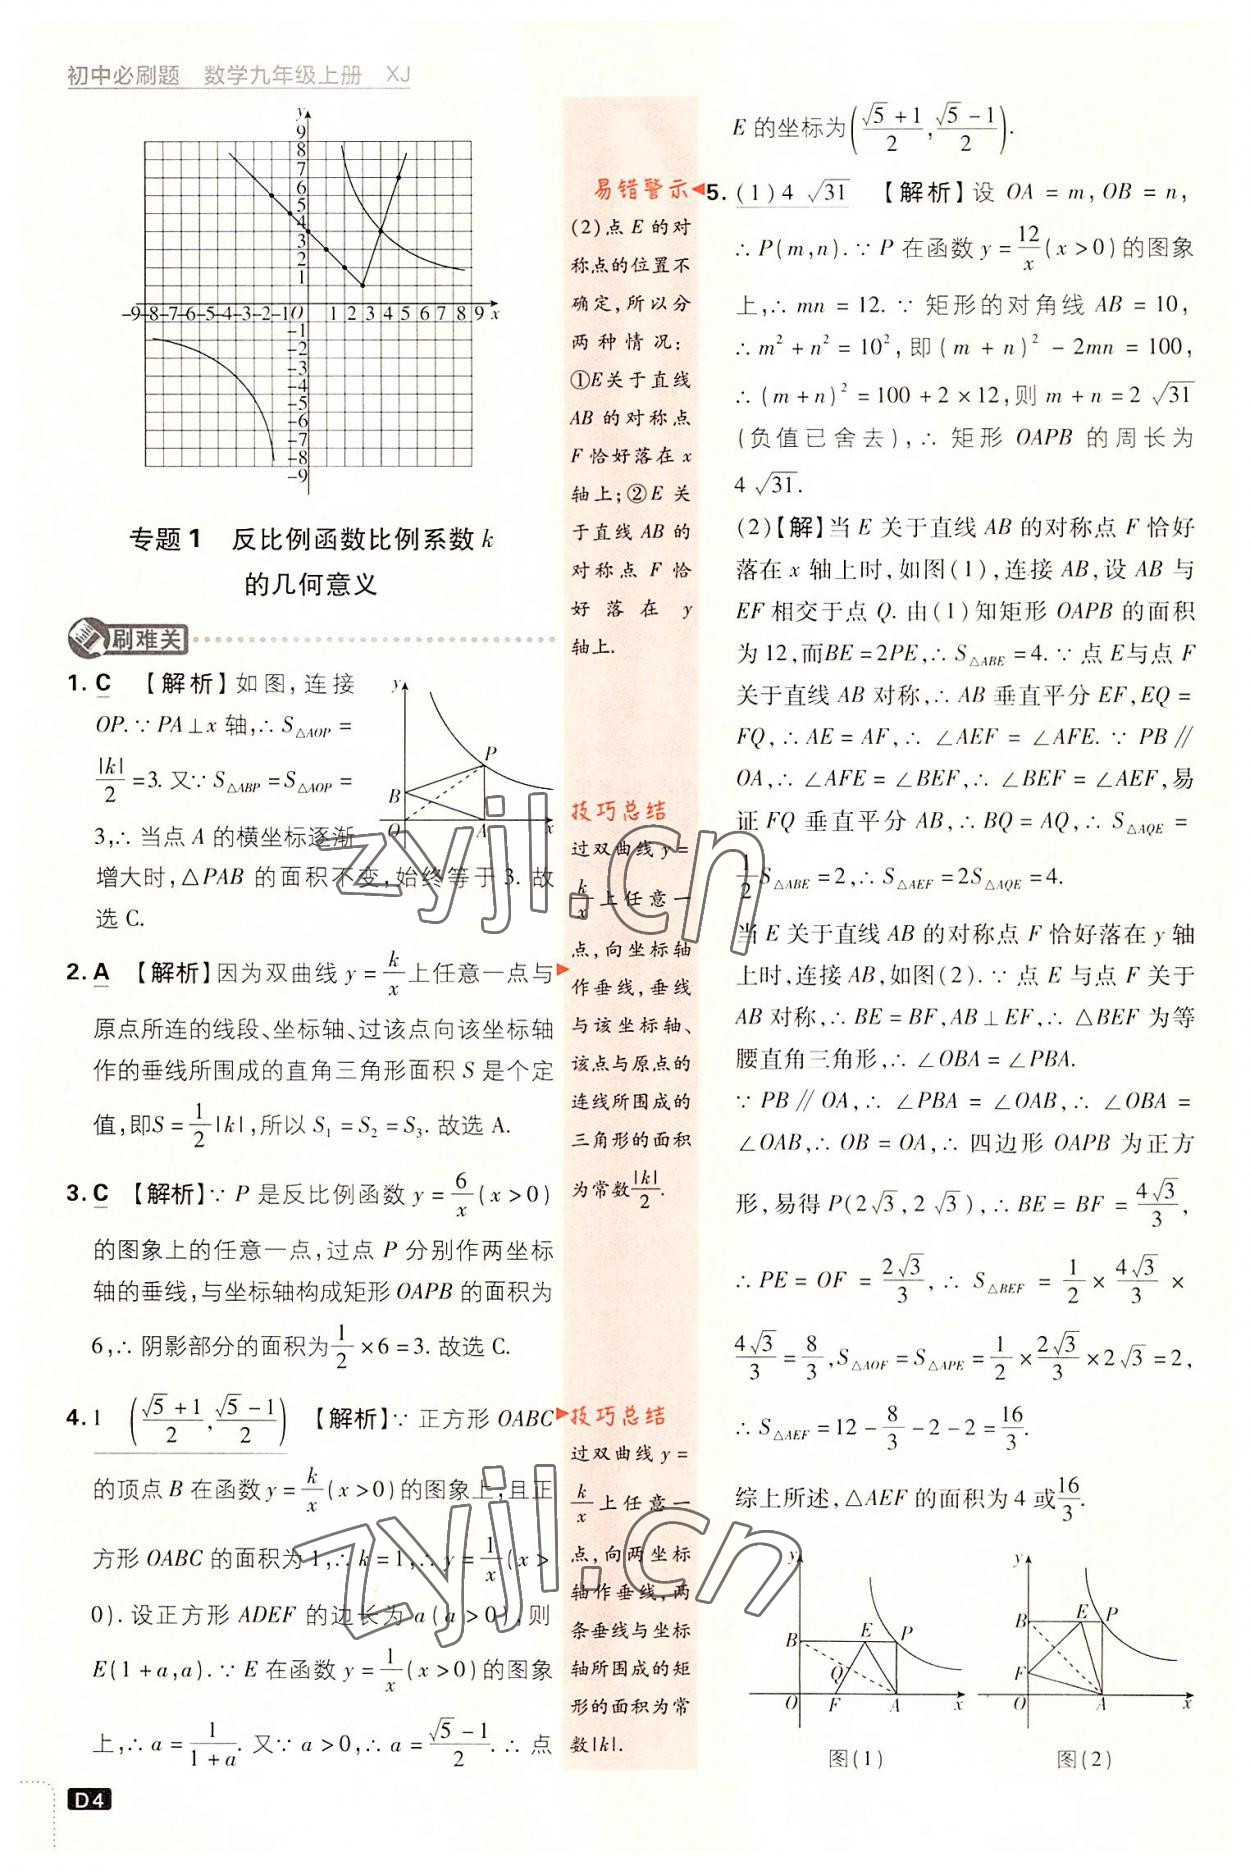 初中必刷题 数学九年级上册 XJ
y
9
8
7
6
5
4
3
2
1
-9-8-7-6-5-4-3-2-1O 1 2 3 4 5 6 7 8 9 x
-1
-2
-3
-4
-5
-6
-7
-8
-9
专题1 反比例函数比例系数k
的几何意义
刷难关
1. C 【解析】如图,连接
OP.∵PA⊥x轴,∴S△AOP=
|k|/2=3.又∵S△ABP=S△AOP=
3,∴当点A的横坐标逐渐
增大时,△PAB的面积不变,始终等于3.故
选C.
y
P
B
O A x
2. A 【解析】因为双曲线y=k/x上任意一点与
原点所连的线段、坐标轴、过该点向该坐标轴
作的垂线所围成的直角三角形面积S是个定
值,即S=1/2|k|,所以S₁=S₂=S₃.故选A.
3. C 【解析】∵P是反比例函数y=6/x(x>0)
的图象上的任意一点,过点P分别作两坐标
轴的垂线,与坐标轴构成矩形OAPB的面积为
6,∴阴影部分的面积为1/2×6=3.故选C.
4. 1 ((√5+1)/2,(√5-1)/2) 【解析】∵正方形OABC
的顶点B在函数y=k/x(x>0)的图象上,且正
方形OABC的面积为1,∴k=1,∴y=1/x(x>
0).设正方形ADEF的边长为a(a>0),则
E(1+a,a).∵E在函数y=1/x(x>0)的图象
上,∴a=1/(1+a).又∵a>0,∴a=(√5-1)/2.∴点
D4
易错警示
(2)点E的对
称点的位置不
确定,所以分
两种情况:
①E关于直线
AB的对称点
F恰好落在x
轴上;②E关
于直线AB的
对称点F恰
好落在y
轴上.
技巧总结
过双曲线y=
k/x上任意一
点,向坐标轴
作垂线,垂线
与该坐标轴、
该点与原点的
连线所围成的
三角形的面积
为常数|k|/2.
技巧总结
过双曲线y=
k/x上任意一
点,向两坐标
轴作垂线,两
条垂线与坐标
轴所围成的矩
形的面积为常
数|k|.
E的坐标为((√5+1)/2,(√5-1)/2).
5. (1)4√31 【解析】设OA=m,OB=n,
∴P(m,n).∵P在函数y=12/x(x>0)的图象
上,∴mn=12.∵矩形的对角线AB=10,
∴m²+n²=10²,即(m+n)²-2mn=100,
∴(m+n)²=100+2×12,则m+n=2√31
(负值已舍去),∴矩形OAPB的周长为
4√31.
(2)【解】当E关于直线AB的对称点F恰好
落在x轴上时,如图(1),连接AB,设AB与
EF相交于点Q.由(1)知矩形OAPB的面积
为12,而BE=2PE,∴S△ABE=4.∵点E与点F
关于直线AB对称,∴AB垂直平分EF,EQ=
FQ,∴AE=AF,∴∠AEF=∠AFE.∵PB∥
OA,∴∠AFE=∠BEF,∴∠BEF=∠AEF,易
证FQ垂直平分AB,∴BQ=AQ,∴S△AQE=
1/2S△ABE=2,∴S△AEF=2S△AQE=4.
当E关于直线AB的对称点F恰好落在y轴
上时,连接AB,如图(2).∵点E与点F关于
AB对称,∴BE=BF,AB⊥EF,∴△BEF为等
腰直角三角形,∴∠OBA=∠PBA.
∵PB∥OA,∴∠PBA=∠OAB,∴∠OBA=
∠OAB,∴OB=OA,∴四边形OAPB为正方
形,易得P(2√3,2√3),∴BE=BF=4√3/3,
∴PE=OF=2√3/3,∴S△BEF=1/2×4√3/3×
4√3/3=8/3,S△AOF=S△APE=1/2×2√3/3×2√3=2,
∴S△AEF=12-8/3-2-2=16/3.
综上所述,△AEF的面积为4或16/3.
y
B E P
Q
O F A x
图(1)
y
B E P
F
O A x
图(2)
zyjl.cn
zyjl.cn